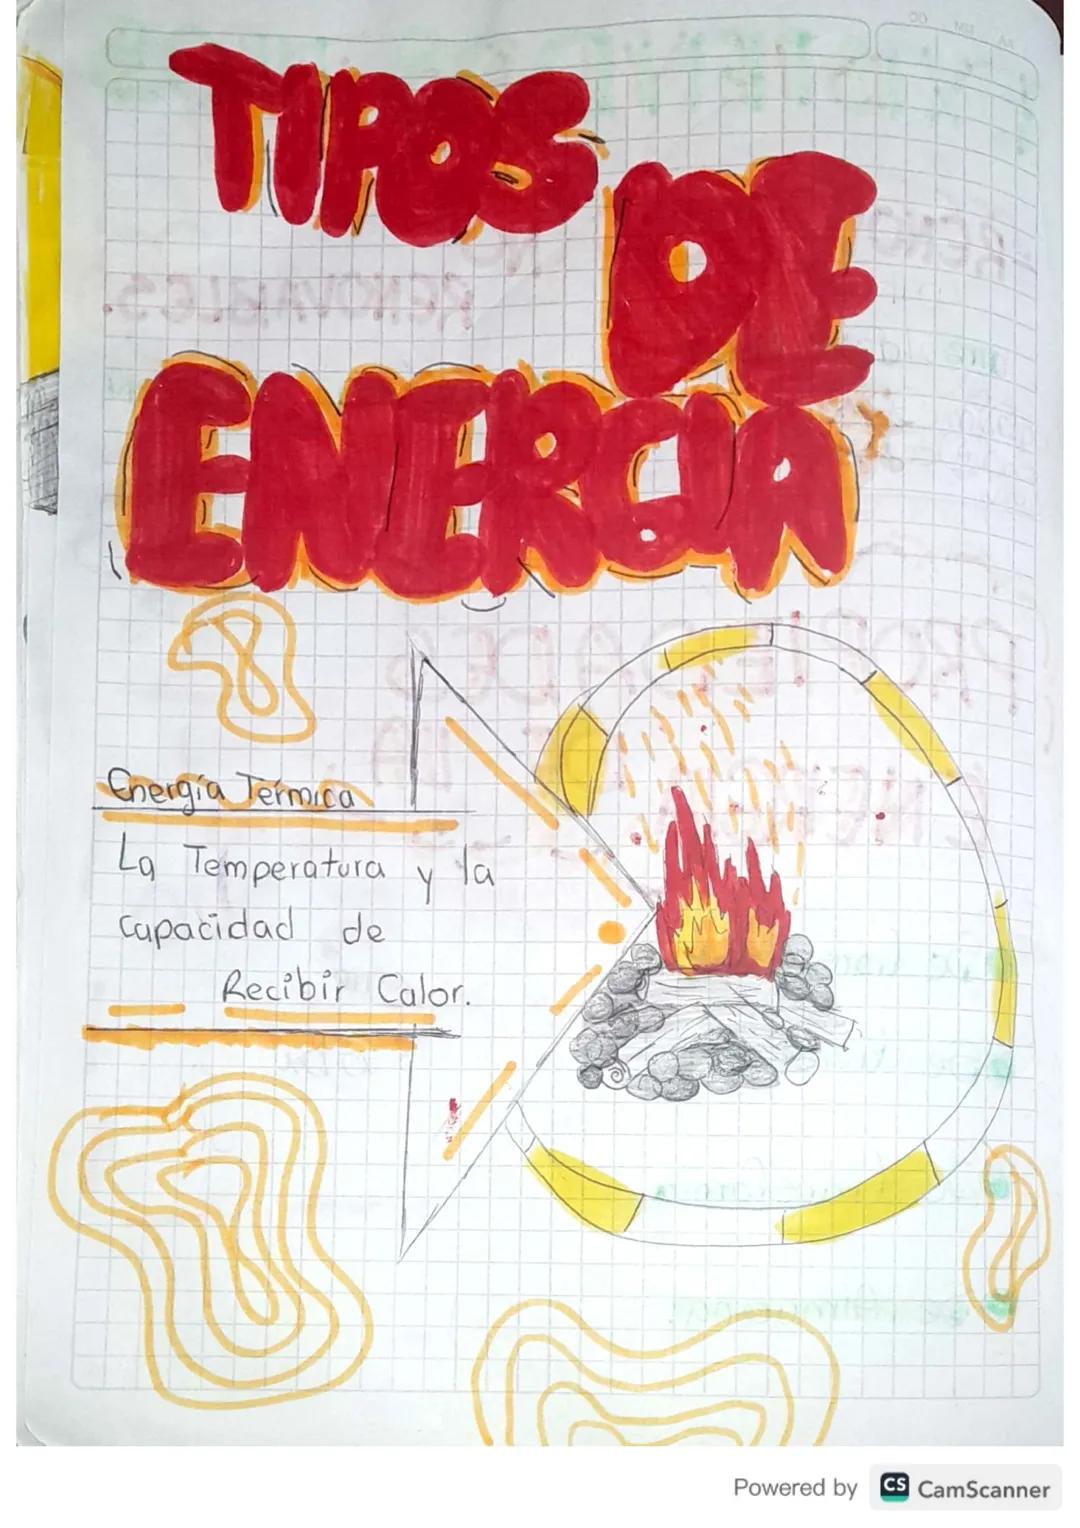 TIPOS
DE
ENERGIA
Energía Térmica
La Temperatura y la
Capacidad de
Recibir Calor.
Powered by CS CamScanner